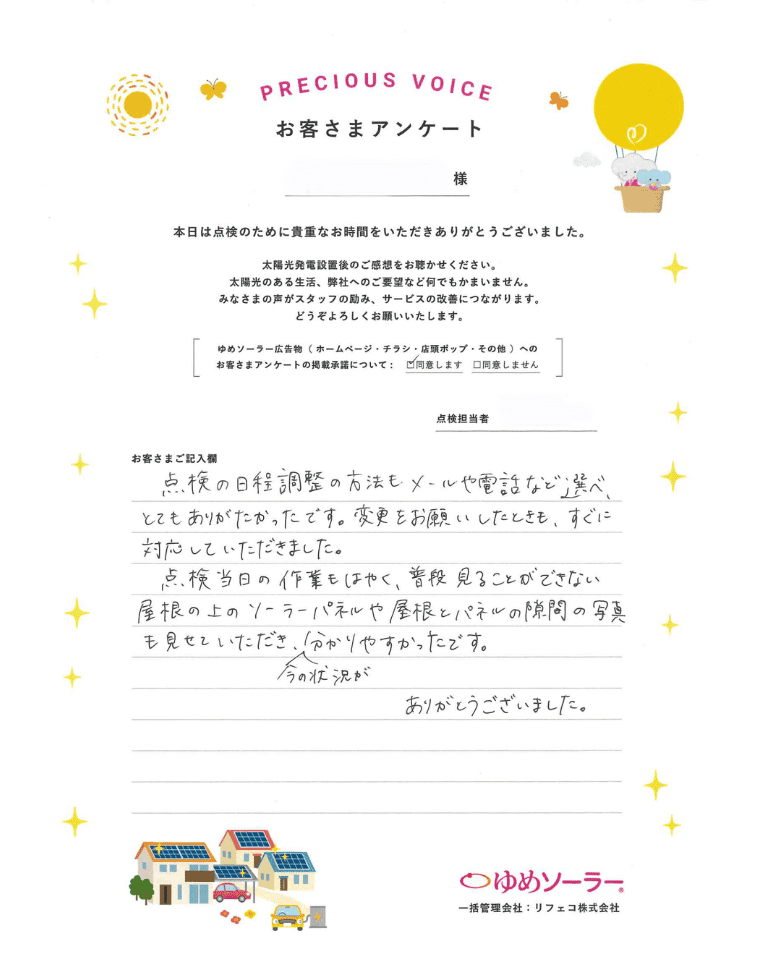 PRECIOUS VOICE
お客さまアンケート
様
本日は点検のために貴重なお時間をいただきありがとうございました。
太陽光発電設置後のご感想をお聴かせください。
太陽光のある生活、弊社へのご要望など何でもかまいません。
みなさまの声がスタッフの励み、サービスの改善につながります。
どうぞよろしくお願いいたします。
ゆめソーラー広告物（ホームページ・チラシ・店頭ポップ・その他）への
お客さまアンケートの掲載承諾について： ☑同意します □同意しません
点検担当者
お客さまご記入欄
点検の日程調整の方法もメールや電話など選べ、
とてもありがたかったです。変更をお願いしたときも、すぐに
対応していただきました。
点検当日の作業もはやく、普段見ることができない
屋根の上のソーラーパネルや屋根とパネルの隙間の写真
も見せていただき、分かりやすかったです。
今の状況が
ありがとうございました。
ゆめソーラー®
一括管理会社：リフェコ株式会社